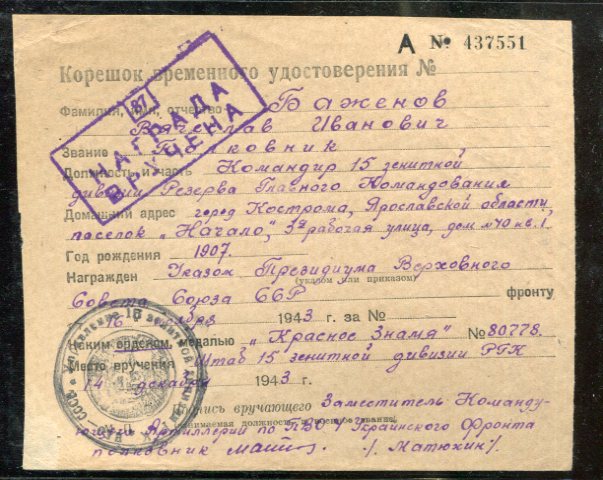 А № 437551
Корешок временного удостоверения №
87
НАГРАДА
ВРУЧЕНА
Фамилия, имя, отчество Баженов
Вячеслав Иванович
Звание Полковник
Должность и часть Командир 15 зенитной
дивизии Резерва Главного Командования
Домашний адрес город Кострома, Ярославской области,
поселок „Начало", 3я рабочая улица, дом №40 кв. 1.
Год рождения 1907.
Награжден Указом Президиума Верховного
(указом или приказом)
Совета Союза ССР фронту
16 1943 г. за №
орденом, медалью „Красное Знамя" № 80778.
Место вручения Штаб 15 зенитной дивизии РГК
14 декабря 1943 г.
Подпись вручающего Заместитель Команду-
(занимаемая должность, военное звание)
Артиллерии по ПВО 1 Украинского Фронта
полковник /Матюхин/.